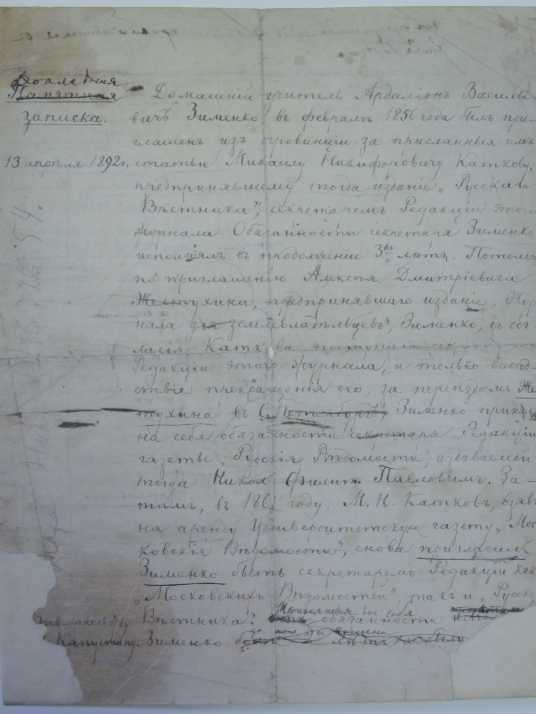 Докладная
Памятная
записка.
13 апреля 1892 г.
Домашній учитель Ардаліонъ Василье-
вичъ Зименко, въ февралѣ 1856 года былъ при-
глашенъ изъ провинціи за присланныя имъ
статьи Михаилу Никифоровичу Каткову,
предпринявшему тогда изданіе „Русскаго
Вѣстника", секретаремъ Редакціи этого
журнала. Обязанности секретаря Зименко
исполнялъ въ продолженіи 3хъ лѣтъ. Потомъ
по приглашенію Алексѣя Дмитріевича
Желтухина, предпринявшаго изданіе „Жур-
нала для землевладѣльцевъ", Зименко, съ сог-
ласія Каткова
Редакціи этого журнала, и только вслѣд-
ствіе прекращенія его, за переѣздомъ Же-
тухина въ Зименко принялъ
на себя обязанности секретаря Редакціи
газеты Русскія Вѣдомости, издаваемой
тогда Никол. Филип. Павловымъ. За-
тѣмъ, въ 186 году, М. Н. Катковъ, взявъ
на аренду Университетскую газету „Мос-
ковскія Вѣдомости", снова пригласилъ
Зименко быть секретаремъ Редакціи какъ
„Московскихъ Вѣдомостей", такъ и „Русск.
Вѣстника". обязанности
Зименко